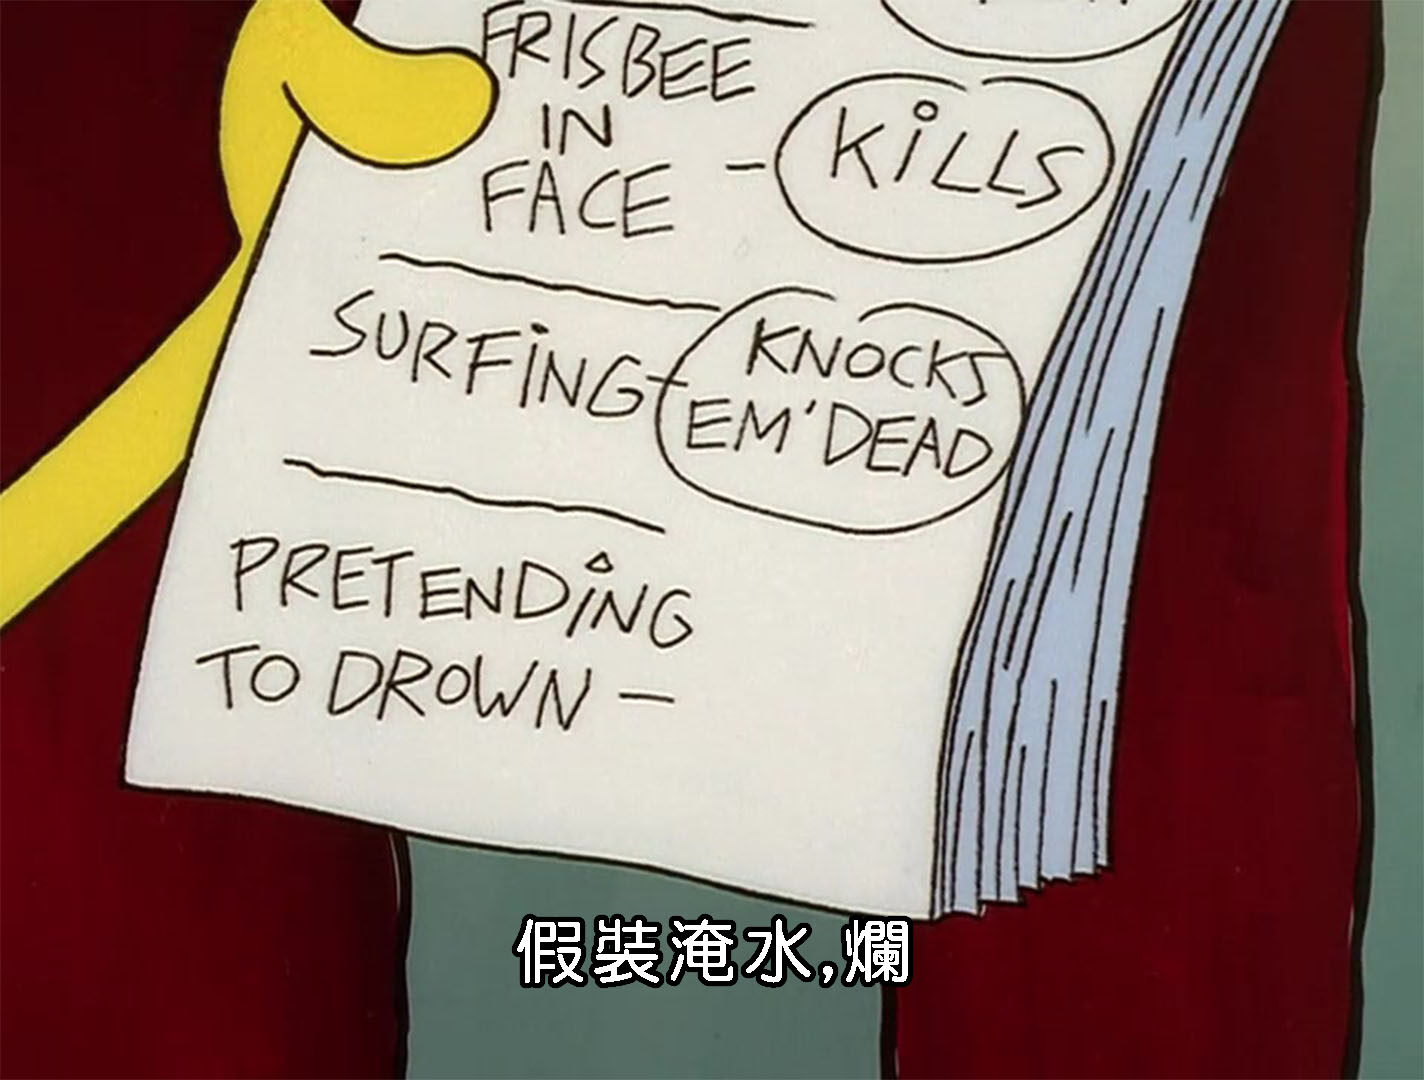 FRISBEE
IN
FACE - KiLLS
SURFiNG - KNOCKS
EM' DEAD
PRETENDiNG
TO DROWN -
假裝淹水,爛